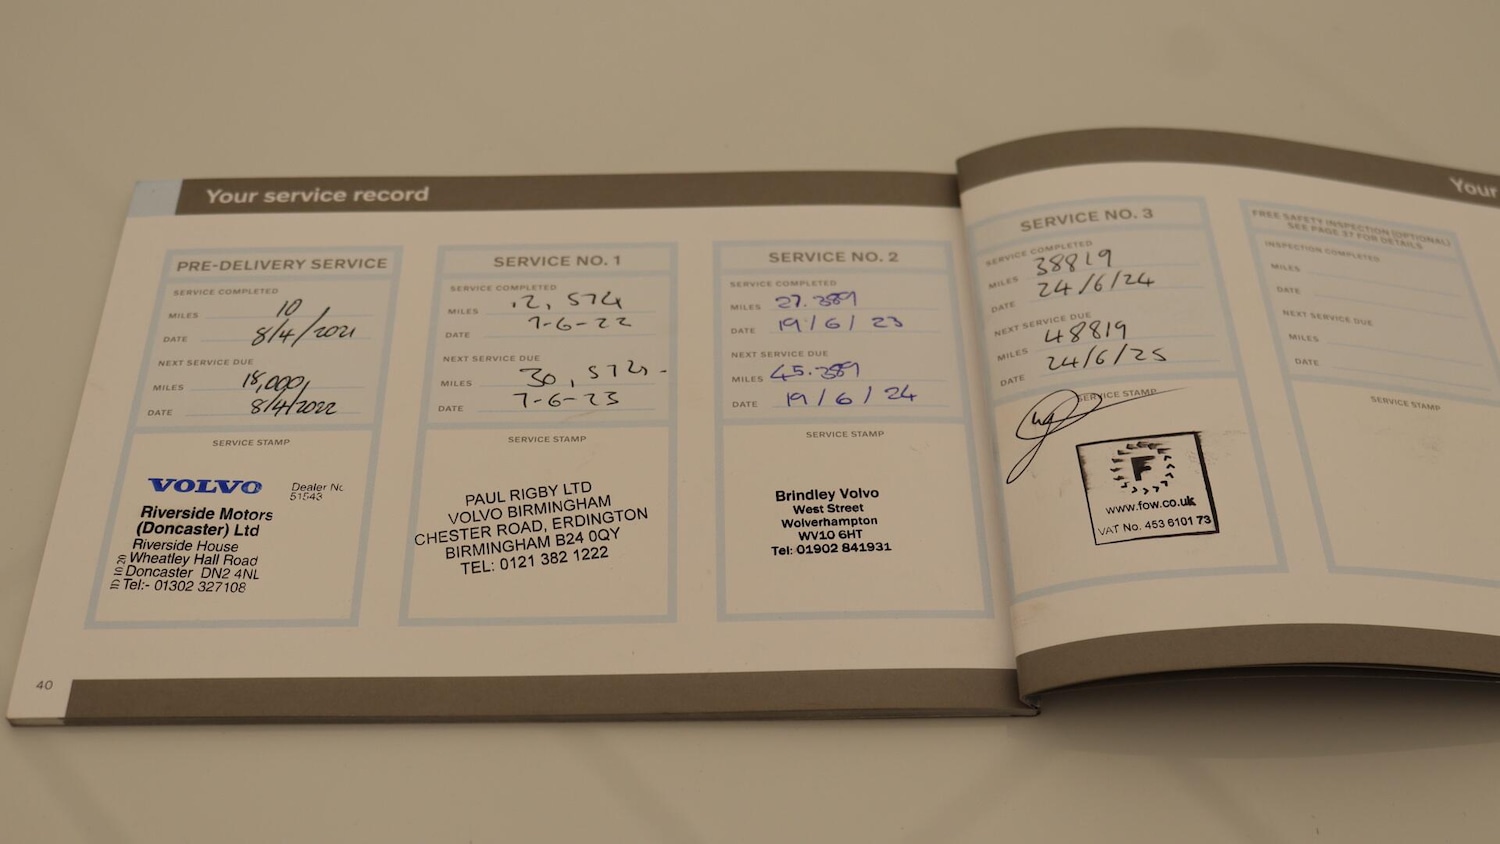 Your service record
PRE-DELIVERY SERVICE
SERVICE COMPLETED
MILES 10
DATE 8/4/2021
NEXT SERVICE DUE
MILES 18,000
DATE 8/4/2022
SERVICE STAMP
VOLVO
Dealer No
51543
Riverside Motors
(Doncaster) Ltd
Riverside House
Wheatley Hall Road
Doncaster DN2 4NL
Tel:- 01302 327108
SERVICE NO. 1
SERVICE COMPLETED
MILES 12,574
DATE 7-6-22
NEXT SERVICE DUE
MILES 30,574
DATE 7-6-23
SERVICE STAMP
PAUL RIGBY LTD
VOLVO BIRMINGHAM
CHESTER ROAD, ERDINGTON
BIRMINGHAM B24 0QY
TEL: 0121 382 1222
SERVICE NO. 2
SERVICE COMPLETED
MILES 27.389
DATE 19/6/23
NEXT SERVICE DUE
MILES 45.389
DATE 19/6/24
SERVICE STAMP
Brindley Volvo
West Street
Wolverhampton
WV10 6HT
Tel: 01902 841931
40
Your
SERVICE NO. 3
SERVICE COMPLETED
MILES 38819
DATE 24/6/24
NEXT SERVICE DUE
MILES 48819
DATE 24/6/25
SERVICE STAMP
F
www.fow.co.uk
VAT No. 453 6101 73
FREE SAFETY INSPECTION (OPTIONAL)
SEE PAGE 37 FOR DETAILS
INSPECTION COMPLETED
MILES
DATE
NEXT SERVICE DUE
MILES
DATE
SERVICE STAMP